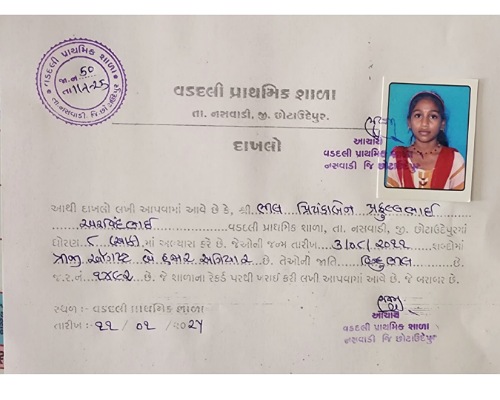 વડદલી પ્રાથમિક શાળા
જા.નં 50
તા. નસવાડી. જિ. છોટાઉદેપુર
વડદલી પ્રાથમિક શાળા
તા. નસવાડી, જી. છોટાઉદેપુર.
દાખલો
આચાર્ય
વડદલી પ્રાથમિક શાળા
નસવાડી જિ છોટાઉદેપુર
આથી દાખલો લખી આપવામાં આવે છે કે, શ્રી. ભીલ પ્રિયંકાબેન પ્રફુલભાઈ
અરવિંદભાઈ વડદલી પ્રાથમિક શાળા, તા. નસવાડી, જી. છોટાઉદેપુરમાં
ધોરણ ૮ (આઠ) માં અભ્યાસ કરે છે. જેઓની જન્મ તારીખ ૩/૦૮/૨૦૧૧ શબ્દોમાં
ત્રીજી ઓગષ્ટ બે હજાર અગિયાર છે. તેઓની જાતિ હિન્દુ ભીલ છે.
જ.ર.નં. ૧૪૯૨ છે. જે શાળાના રેકર્ડ પરથી ખરાઈ કરી લખી આપવામાં આવે છે. જે બરાબર છે.
સ્થળ : વડદલી પ્રાથમિક શાળા
તારીખ : ૧૧ / ૦૧ / ૨૦૨૫
આચાર્ય
વડદલી પ્રાથમિક શાળા
નસવાડી જિ છોટાઉદેપુર